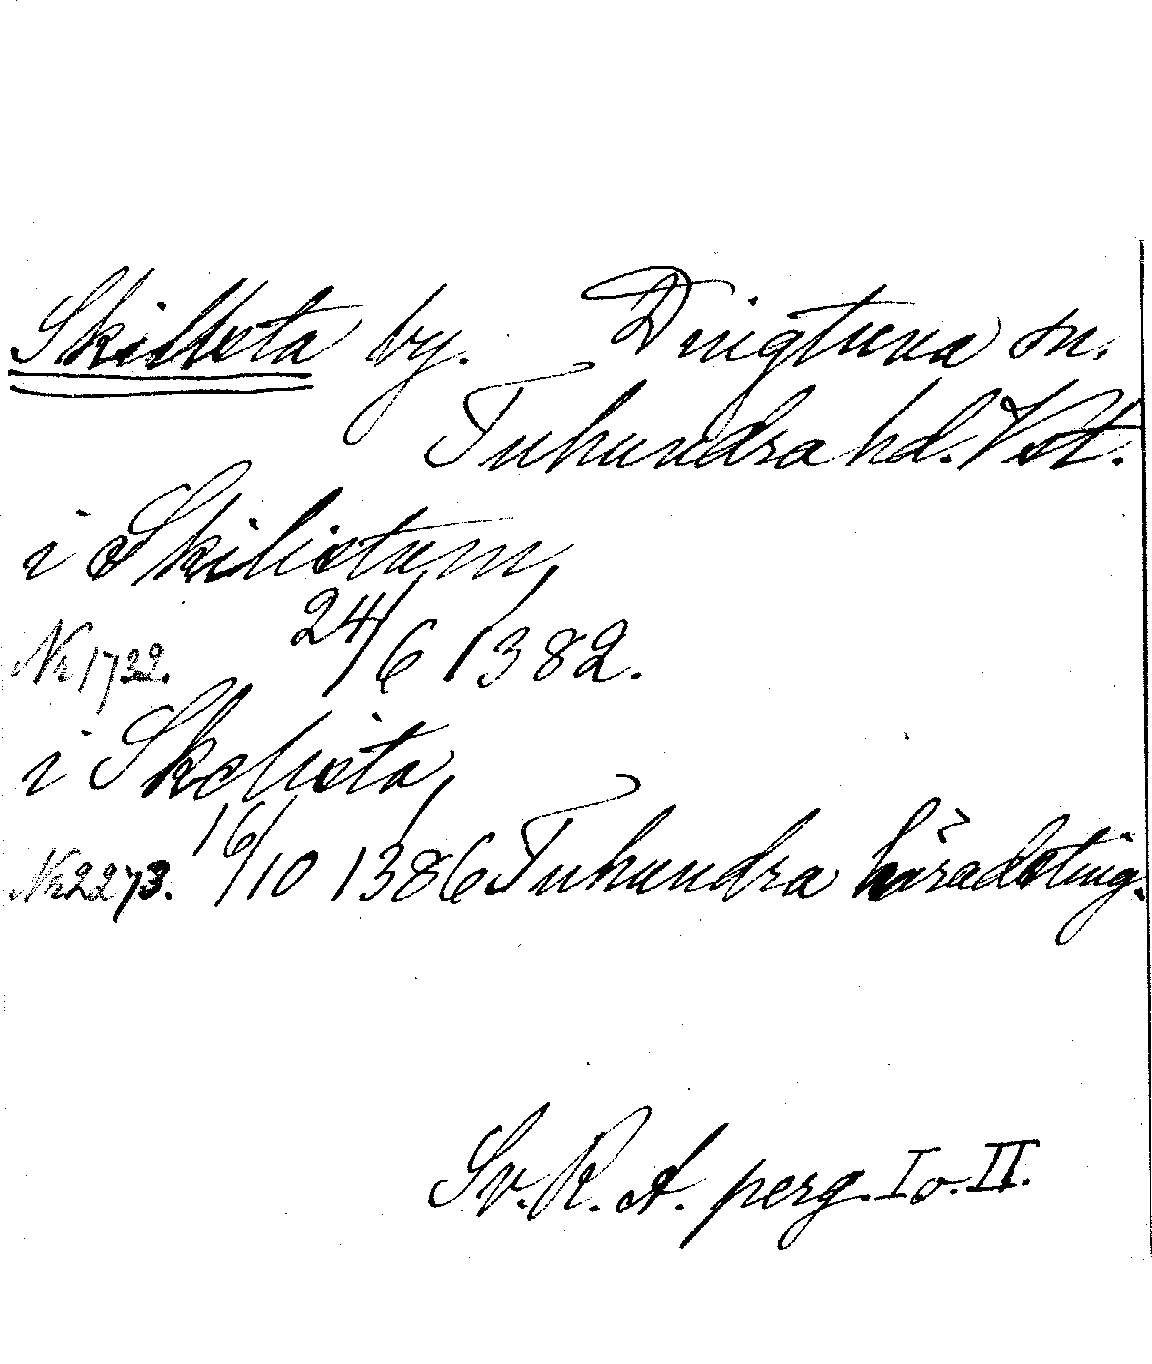 Skilbsta by. Dingtuna sn.
Tuhundra hd. Vstl.
i Skilistum,
Nr 1722. 24/6 1382.
i Skelista,
Nr 2273. 16/10 1386 Tuhundra häradsting.
Sv. R. A. perg. I o. II.